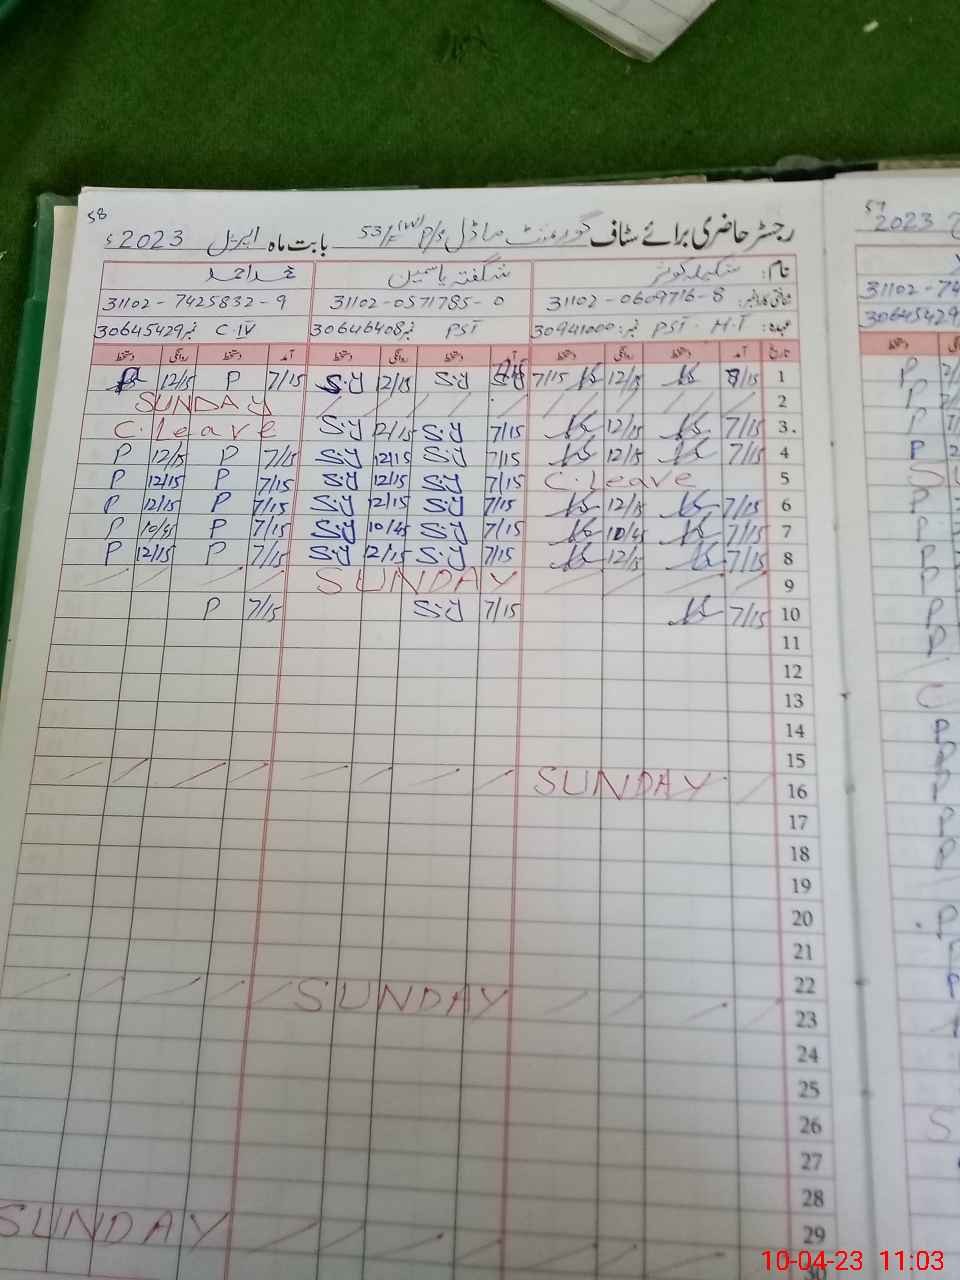 58
رجسٹر حاضری برائے سٹاف گورنمنٹ ماڈل P/S 53/F(W) بابت ماہ اپریل 2023ء
نام: شگفتہ یاسمین
31102-0609716-8 31102-0571785-0 31102-7425832-9
عہدہ: PST. H.T نمبر: 30941000 PST نمبر 30646408 C.IV نمبر 30645429
تاریخ آمد دستخط روانگی دستخط آمد دستخط روانگی دستخط آمد دستخط روانگی دستخط
1 12/15 7/15 S.y 12/15 S.y 7/15 P 12/15
2 SUNDAY
3. 7/15 12/15 7/15 S.y 12/15 S.y C. Leave
4 7/15 12/15 7/15 S.y 12/15 S.y 7/15 P 12/15 P
5 C. Leave 7/15 S.y 12/15 S.y 7/15 P 12/15 P
6 7/15 12/15 7/15 S.y 12/15 S.y 7/15 P 12/15 P
7 7/15 10/45 7/15 S.y 10/45 S.y 7/15 P 10/45 P
8 7/15 12/15 7/15 S.y 12/15 S.y 7/15 P 12/15 P
9 SUNDAY
10 7/15 7/15 S.y 7/15 P
11
12
13
14
15
16 SUNDAY
17
18
19
20
21
22
23 SUNDAY
24
25
26
27
28
29
SUNDAY
30
57
2023
31102-74
30645429
10-04-23 11:03